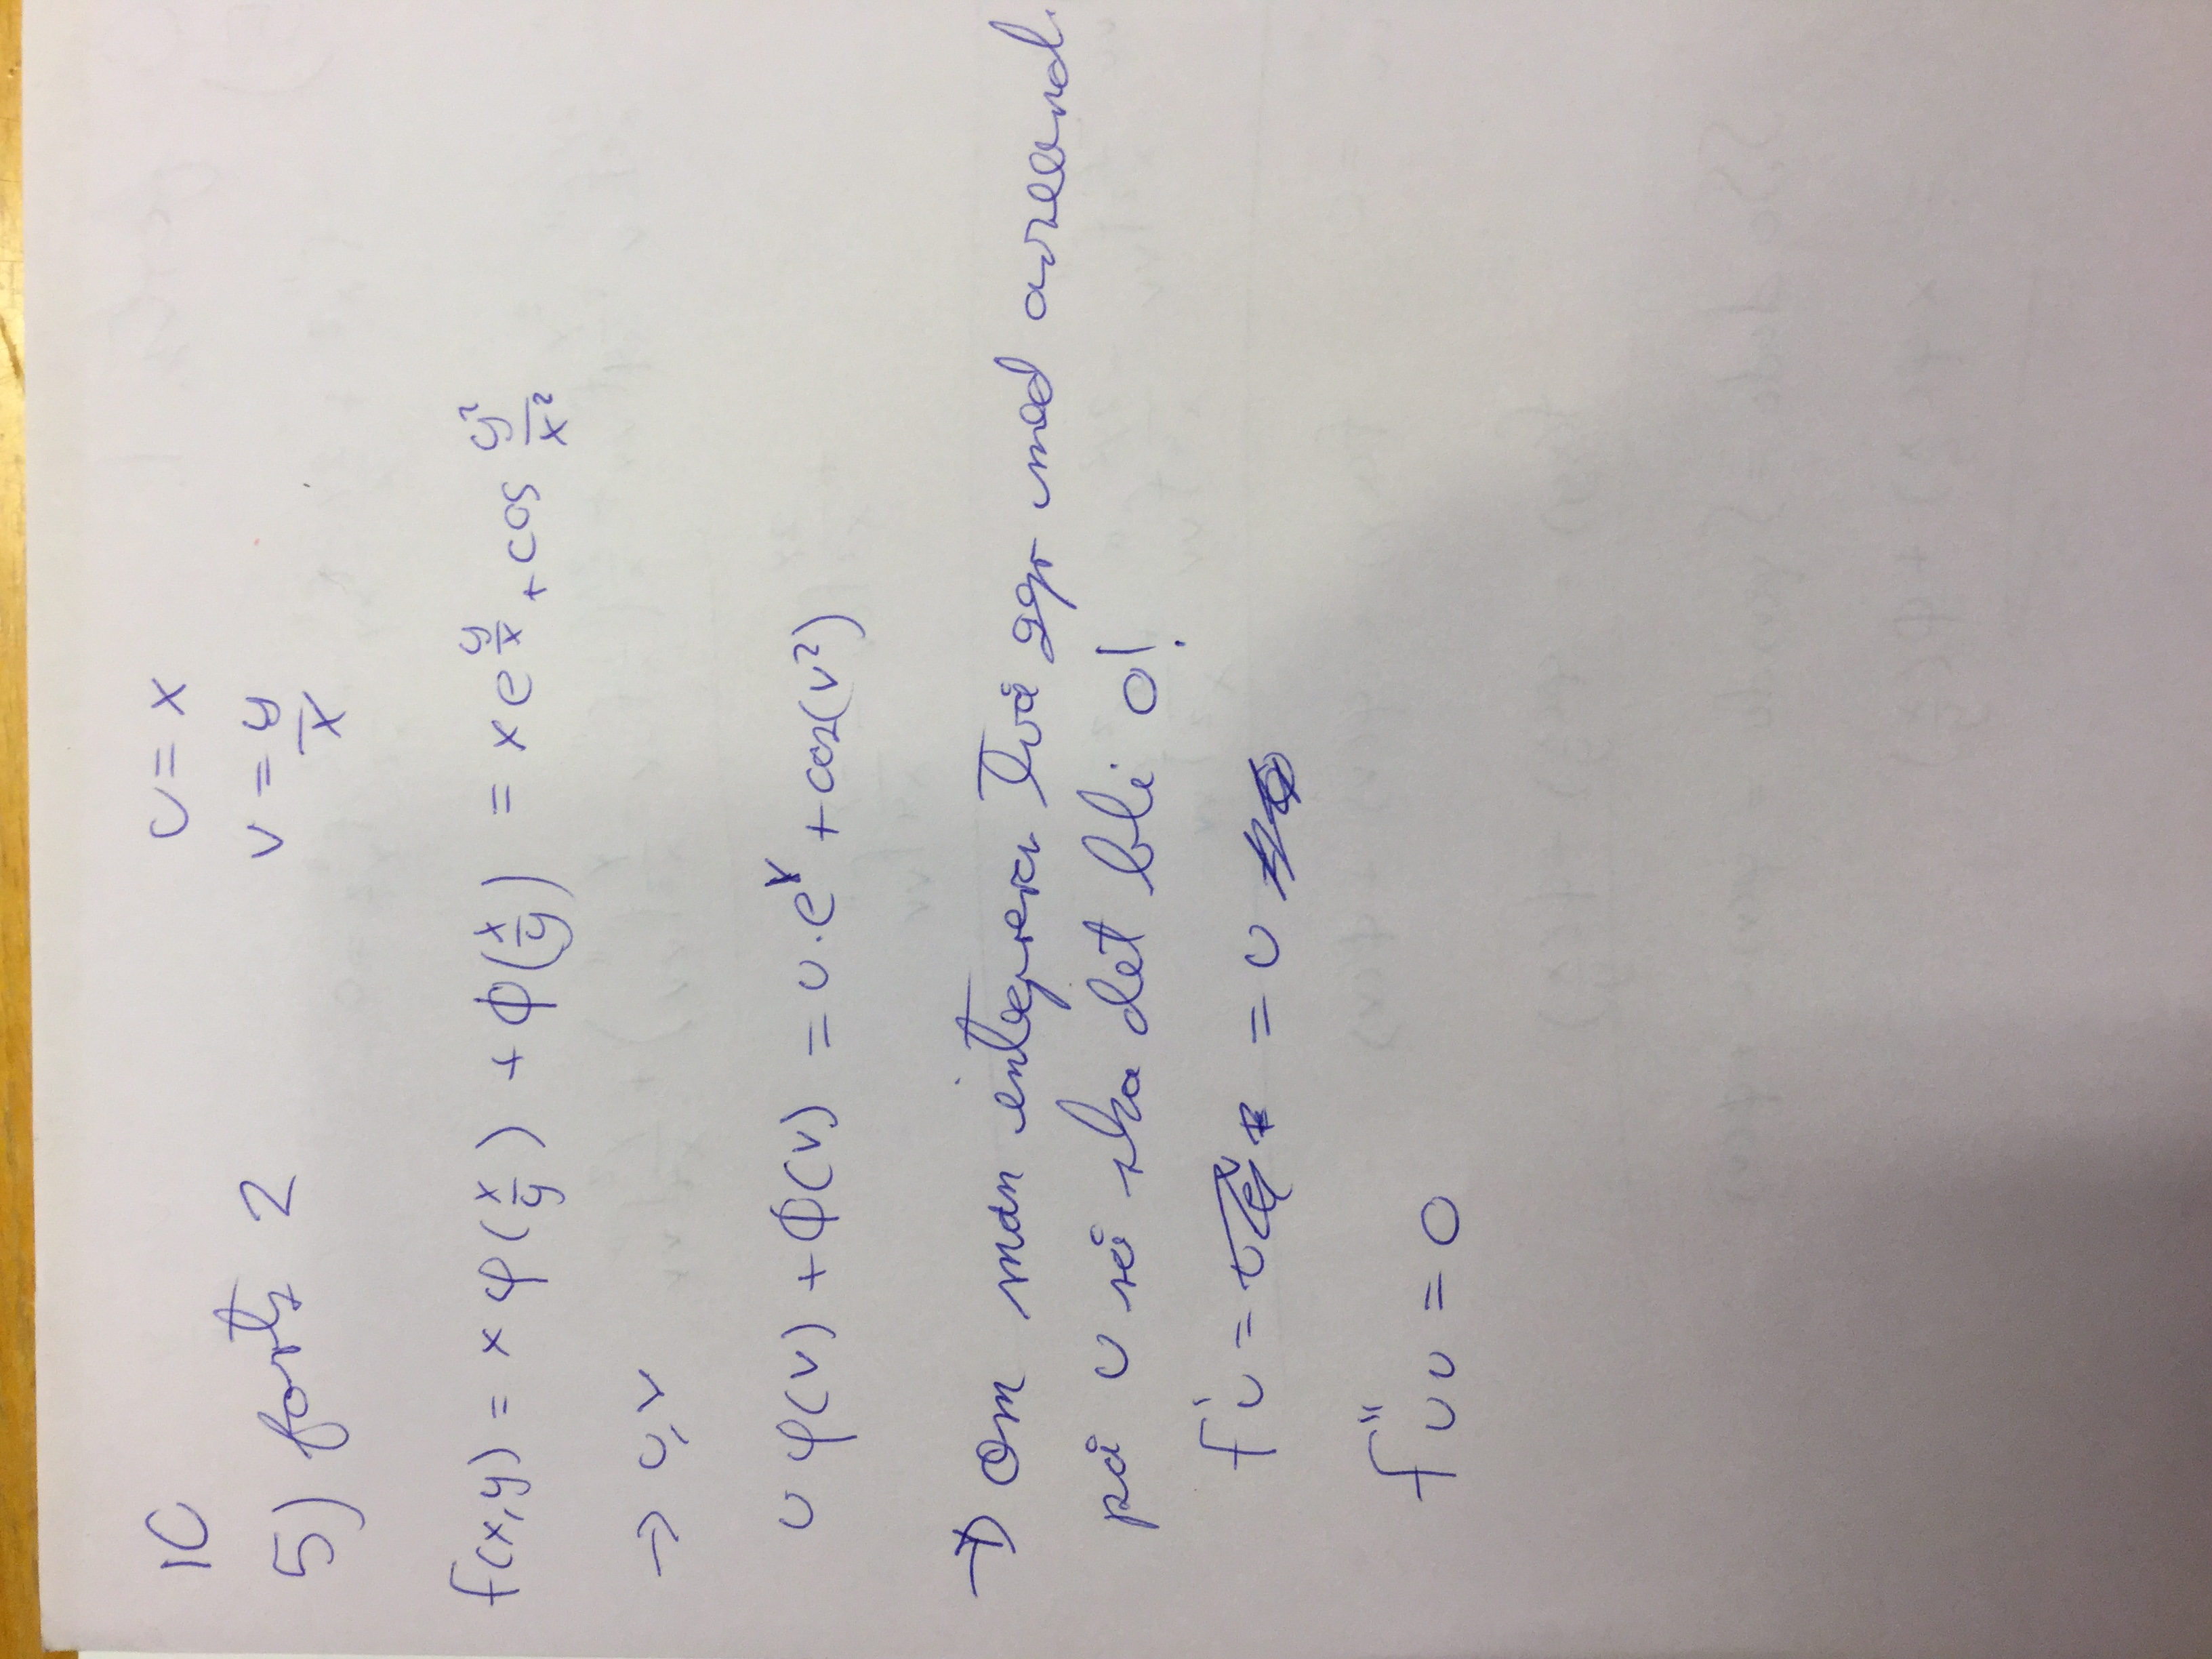 1C
u = x
5) forts 2
v = y/x
f(x,y) = x φ(x/y) + ϕ(x/y) = x e^(y/x) + cos y²/x²
→ u,v
u φ(v) + ϕ(v) = u · e^v + cos(v²)
→ Om man integrerar två ggr med avseend.
på u så ska det bli 0!
f'u = = u
f''uu = 0